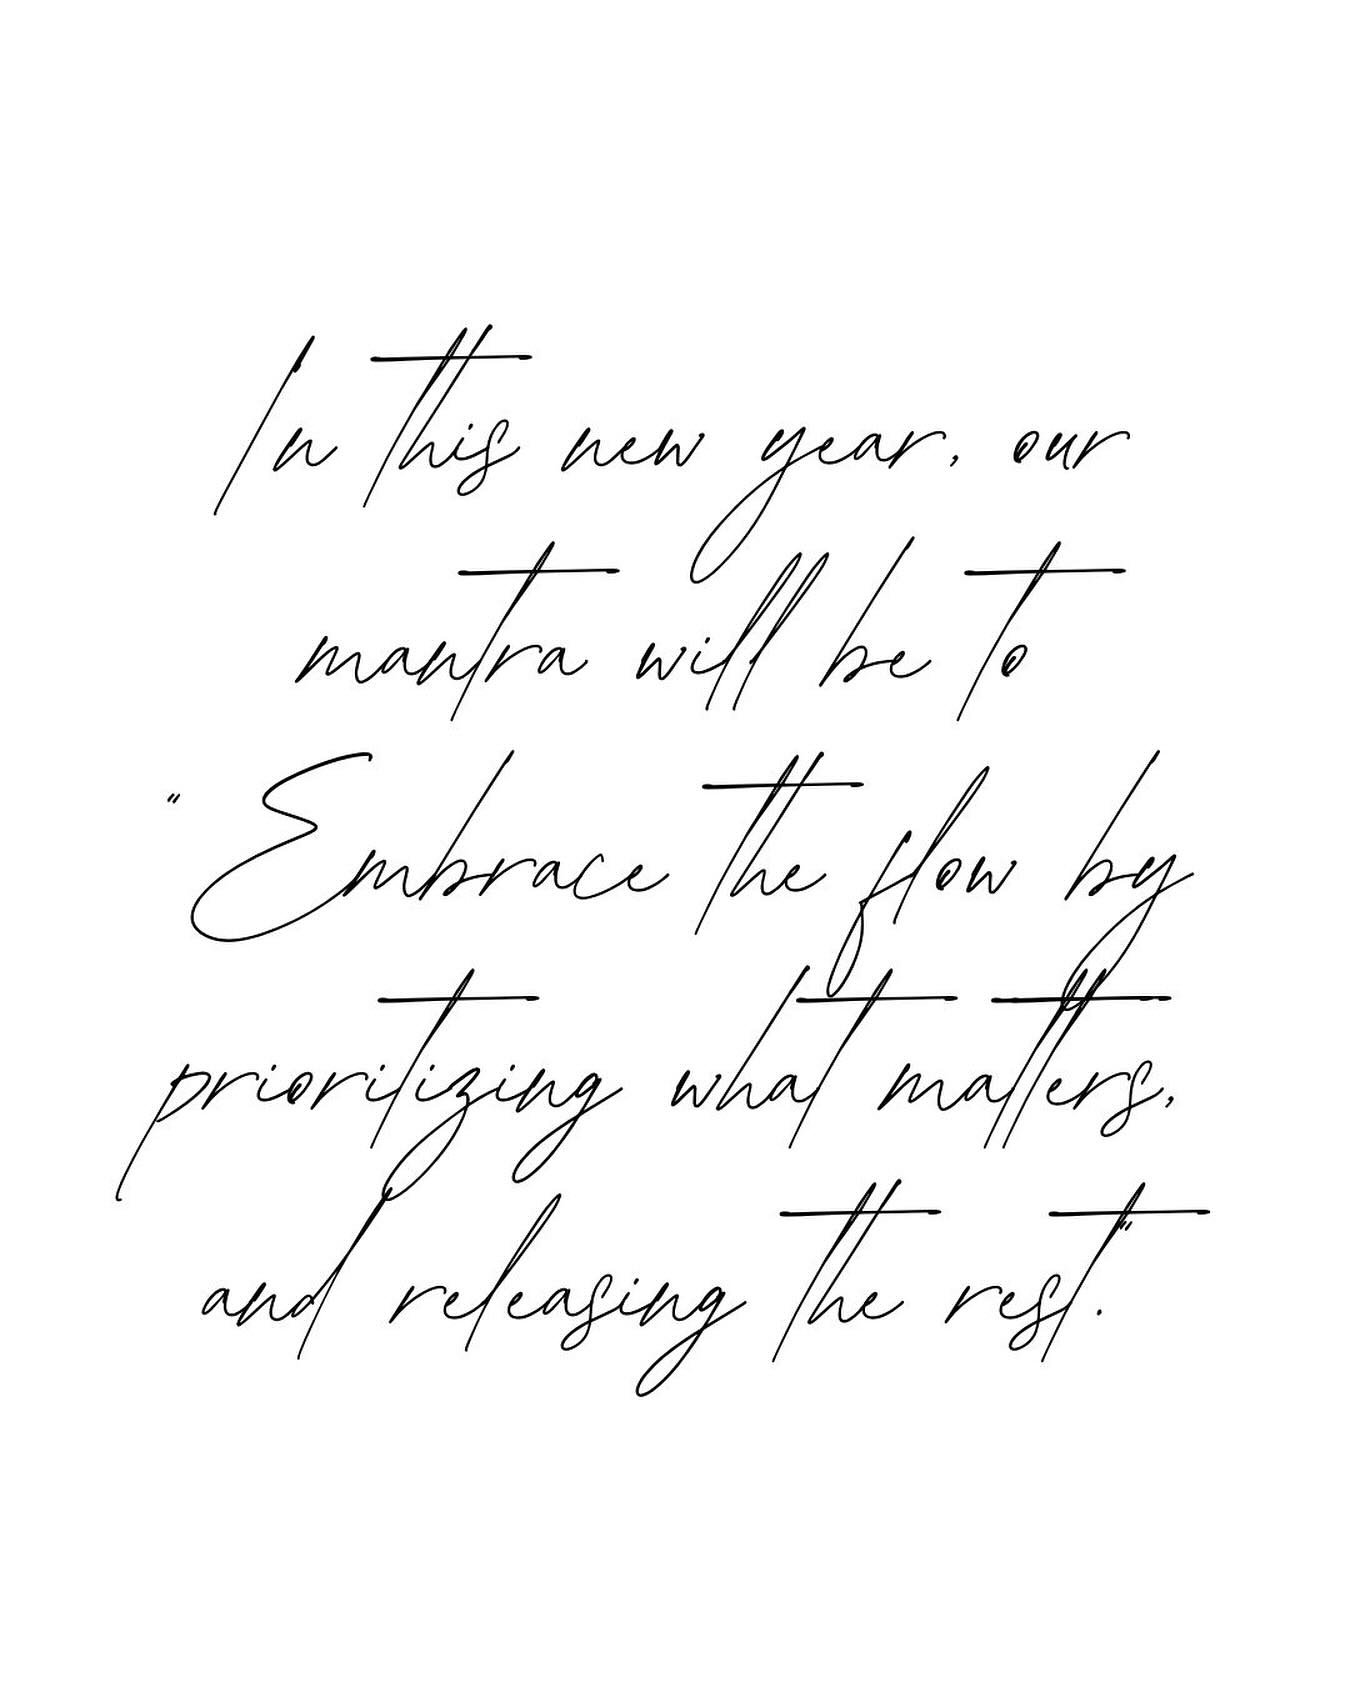 In this new year, our
mantra will be to
"Embrace the flow by
prioritizing what matters,
and releasing the rest".